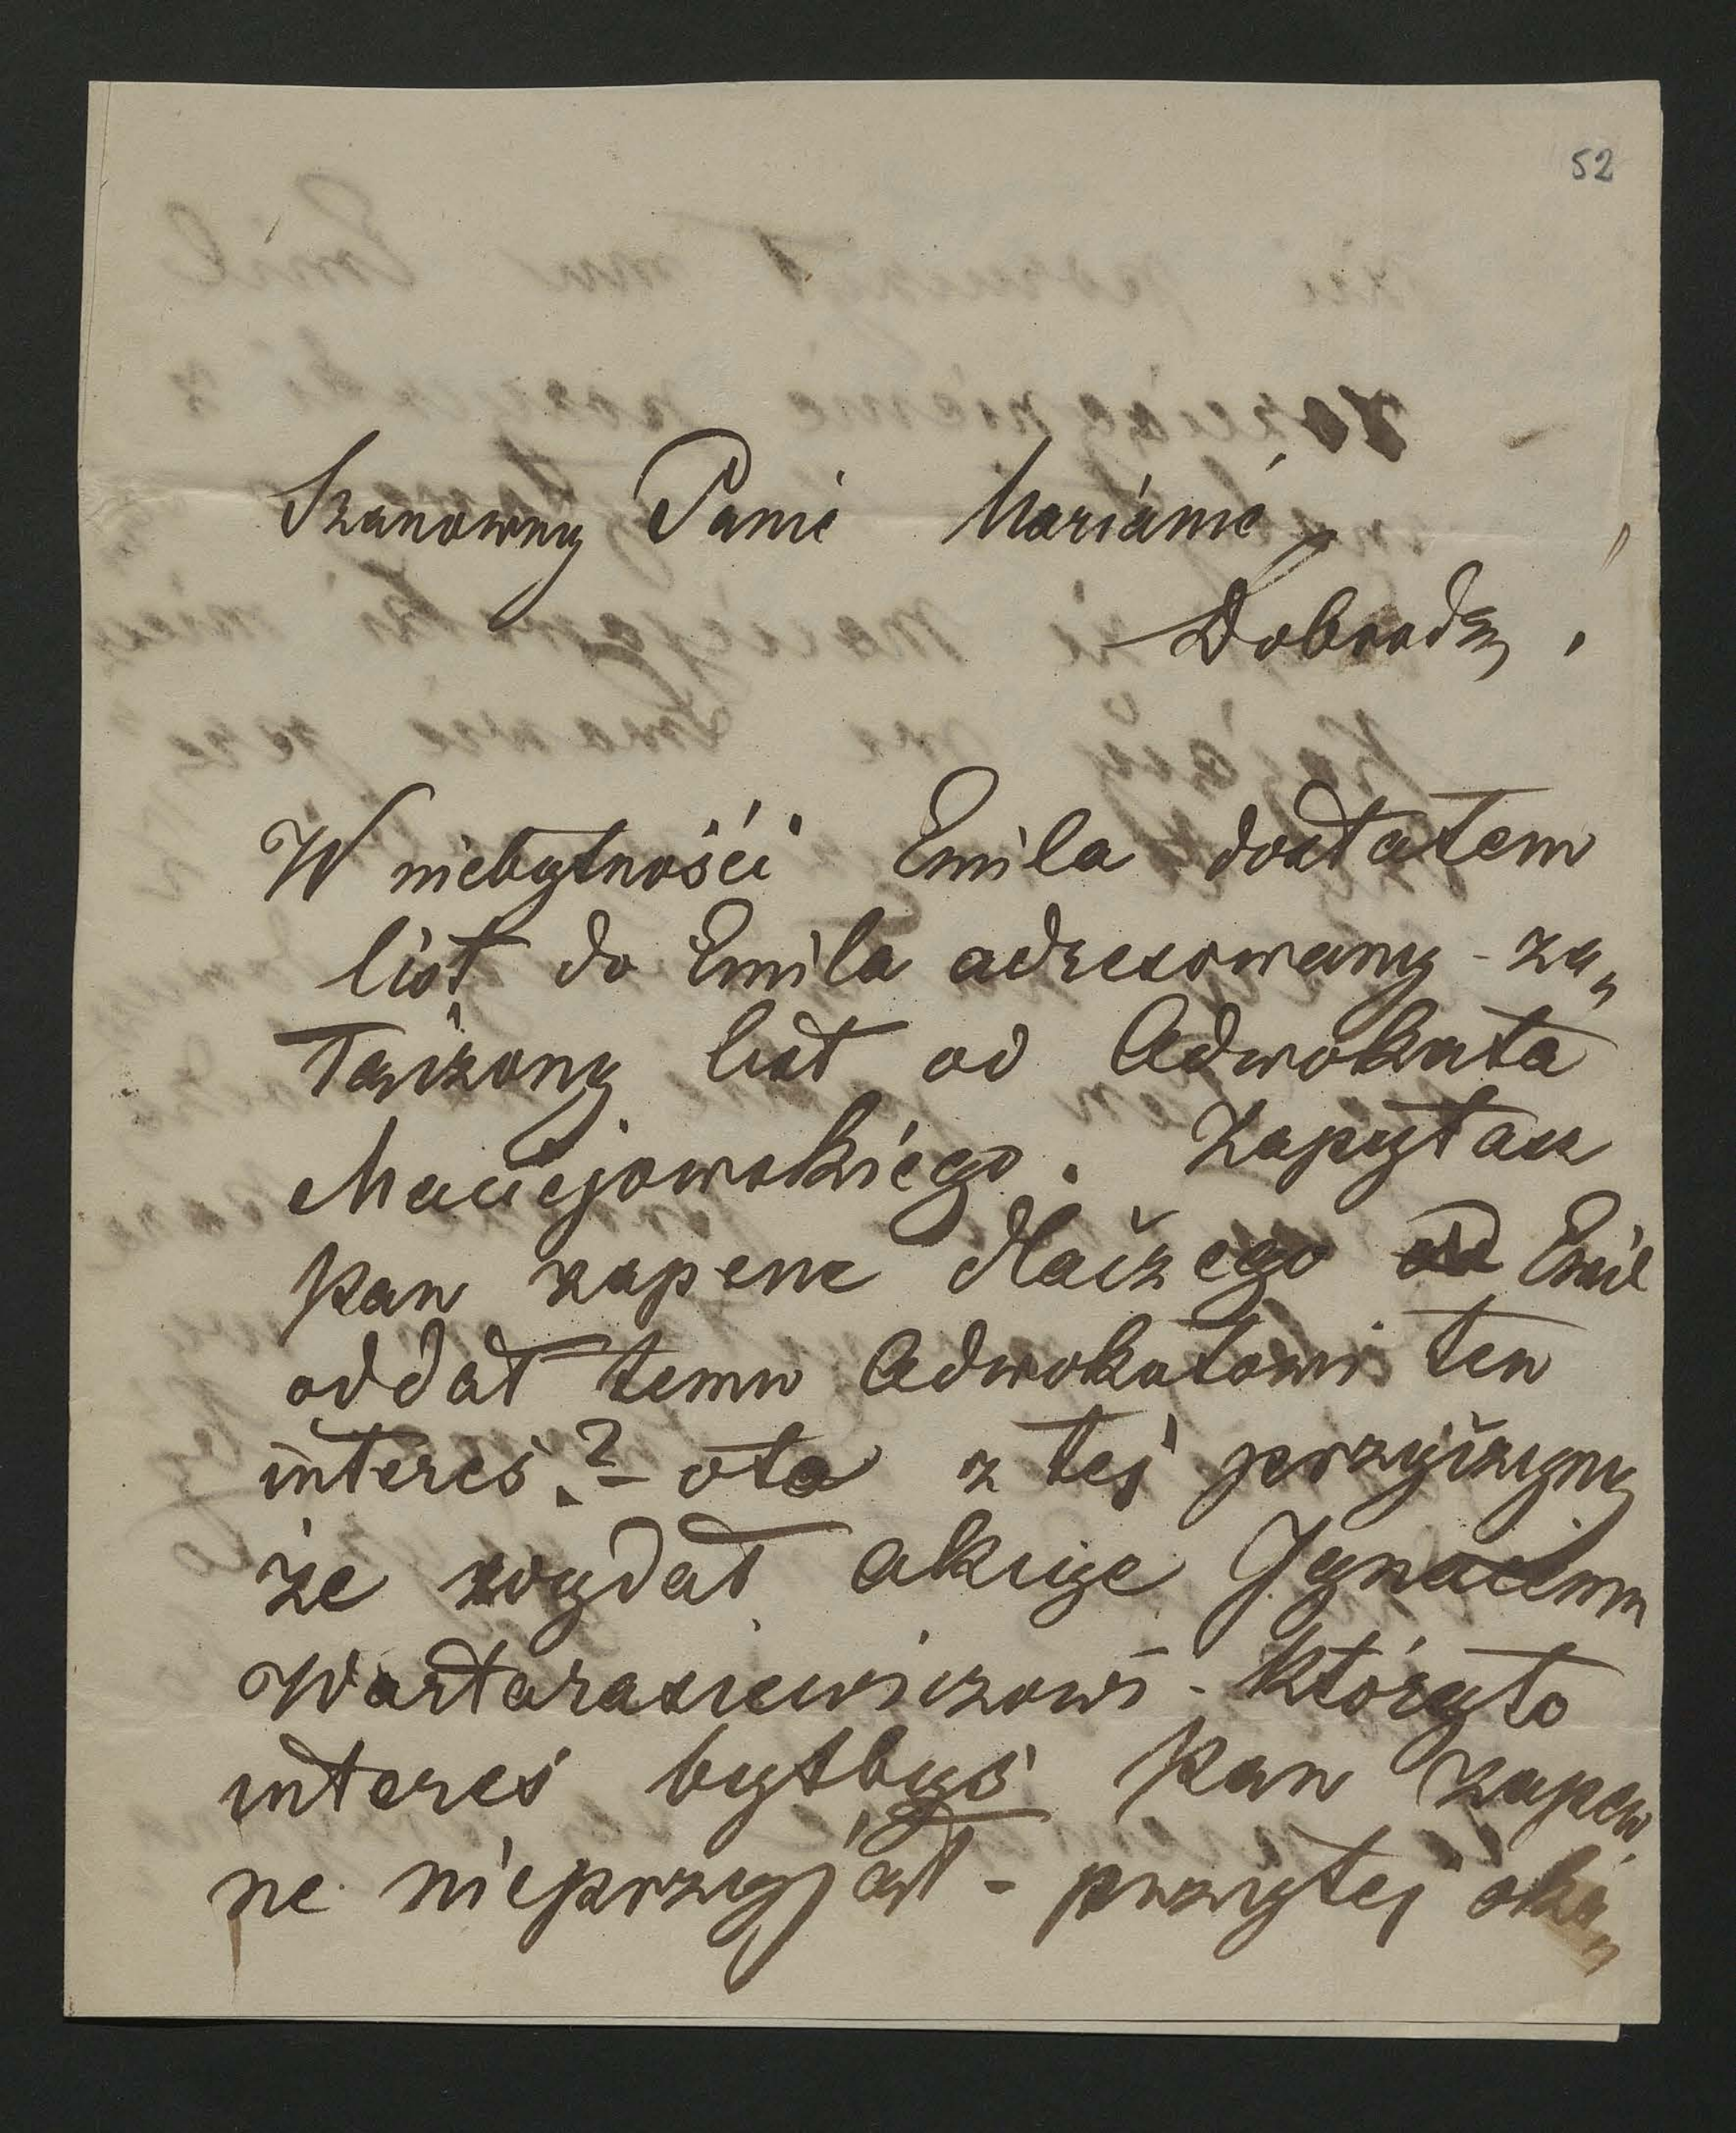 52
Szanowny Panie Mariánie
Dobrodzy !
W niebytnośći Emila dostałem
list do Emila adresowany - za„
łączony list od Adwokata
Maciejowskiégo. Zapytasz
Pan zapene dlaiczego Emil
oddał temu Adwokatowi ten
interes? - oto z tej przyiczyny
że wydał akcije Ignacemu
Wartarasiewiczowi - któryto
interes byłbyś Pan zapew
ne nieprzyjął - przytej oka„